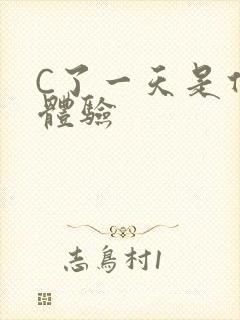 C了一天是什
體驗
志鳥村1